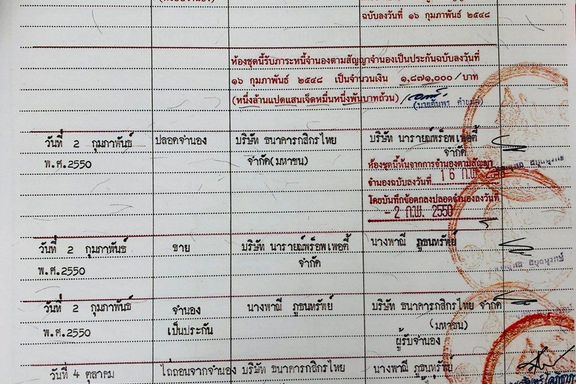 ฉบับลงวันที่ ๑๖ กุมภาพันธ์ ๒๕๔๘
ห้องชุดนี้รับภาระหนี้จำนองตามสัญญาจำนองเป็นประกันฉบับลงวันที่
๑๖ กุมภาพันธ์ ๒๕๔๘ เป็นจำนวนเงิน ๑,๘๗๑,๐๐๐/บาท
(หนึ่งล้านแปดแสนเจ็ดหมื่นหนึ่งพันบาทถ้วน)
วันที่ 2 กุมภาพันธ์ ปลอดจำนอง บริษัท ธนาคารกสิกรไทย บริษัท นารายณ์พร็อพเพอตี้
พ.ศ.2550 จำกัด(มหาชน) จำกัด
ห้องชุดนี้พ้นจากการจำนองตามสัญญา
จำนองฉบับลงวันที่ 16 ก.พ.
โดยบันทึกข้อตกลงปลอดจำนองลงวันที่
- 2 ก.พ. 2550
วันที่ 2 กุมภาพันธ์ ขาย บริษัท นารายณ์พร็อพเพอตี้ นางพาณี ภูธนทรัพย์
พ.ศ.2550 จำกัด
วันที่ 2 กุมภาพันธ์ จำนอง นางพาณี ภูธนทรัพย์ บริษัท ธนาคารกสิกรไทย จำกัด
พ.ศ.2550 เป็นประกัน (มหาชน)
ผู้รับจำนอง
วันที่ 4 ตุลาคม ไถ่ถอนจากจำนอง บริษัท ธนาคารกสิกรไทย นางพาณี ภูธนทรัพย์